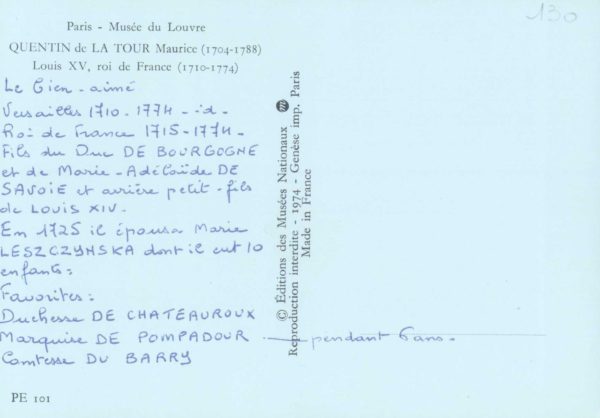 130
Paris - Musée du Louvre
QUENTIN de LA TOUR Maurice (1704-1788)
Louis XV, roi de France (1710-1774)
Le Bien-aimé
Versailles 1710-1774 - id -
Roi de France 1715-1774-
Fils du Duc DE BOURGOGNE
et de Marie-Adélaïde DE
SAVOIE et arrière petit-fils
de LOUIS XIV-
En 1725 il épousa Marie
LESZCZYNSKA dont il eut 10
enfants:
Favorites:
Duchesse DE CHATEAUROUX
Marquise DE POMPADOUR — pendant 6 ans-
Comtesse DU BARRY
PE 101
© Éditions des Musées Nationaux m
Reproduction interdite - 1974 - Genèse imp. Paris
Made in France